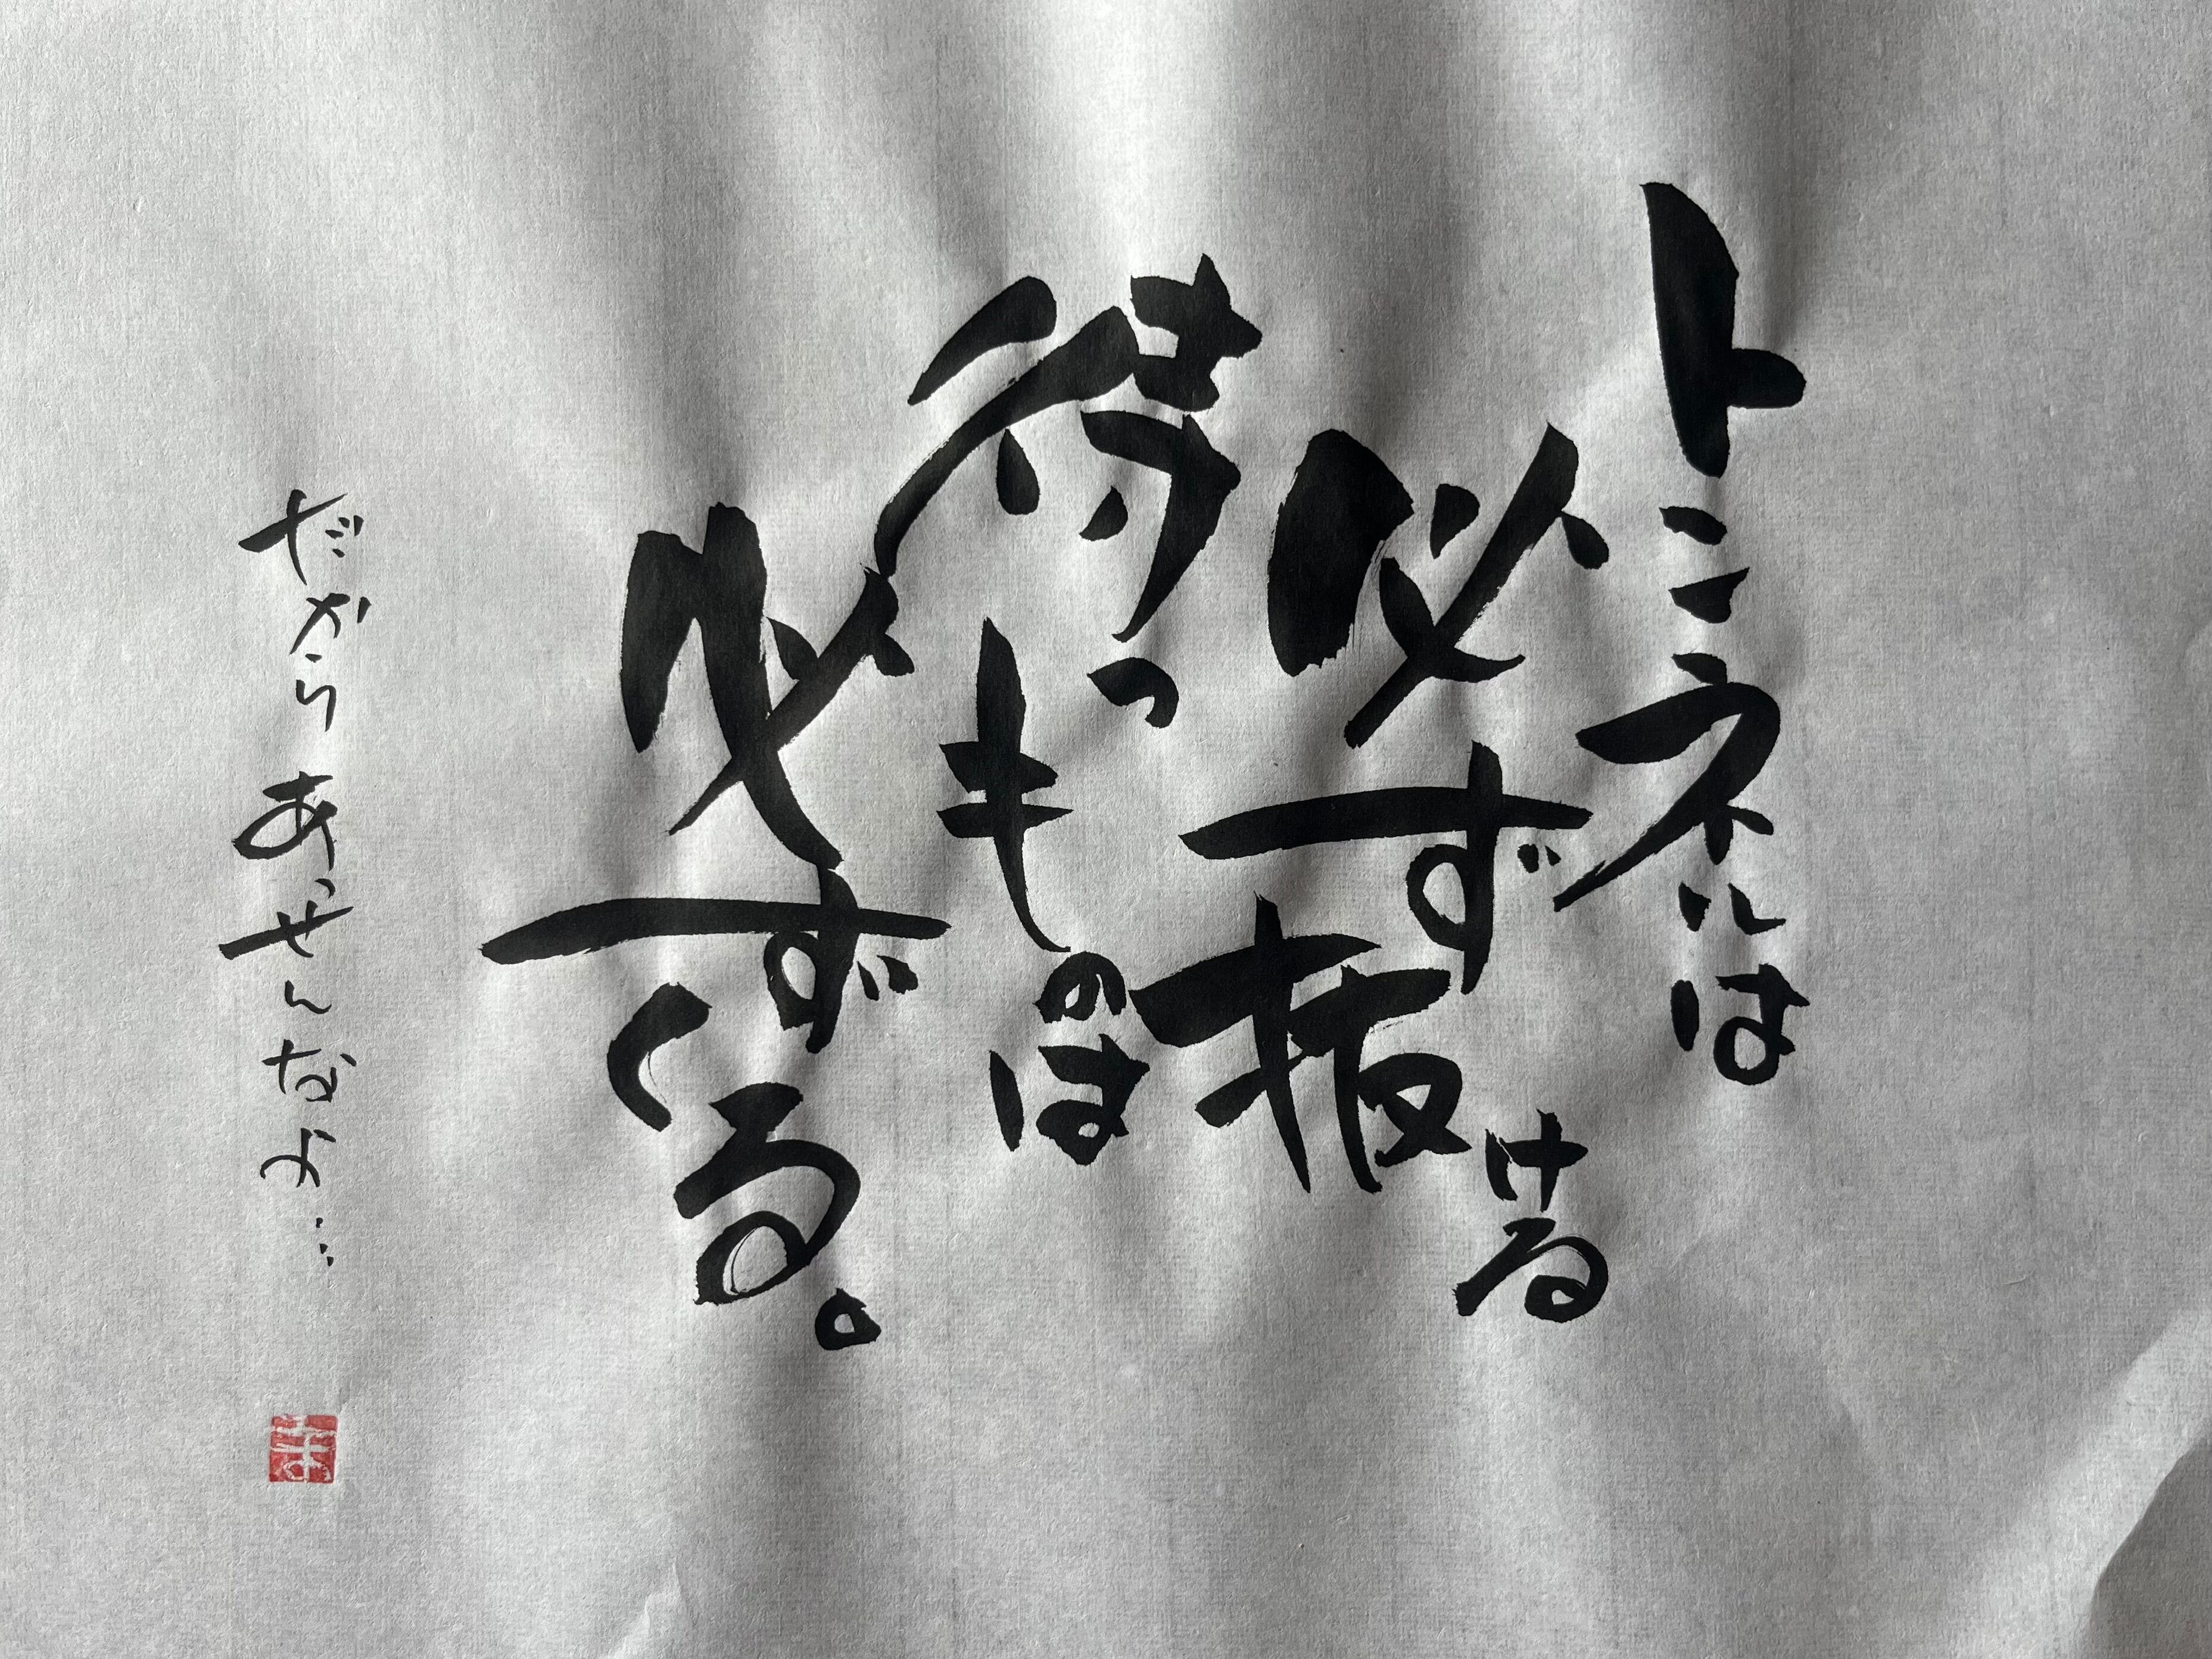 トンネルは
必ず抜ける
待つもの は
必ずくる。
だから あっせんなよ…